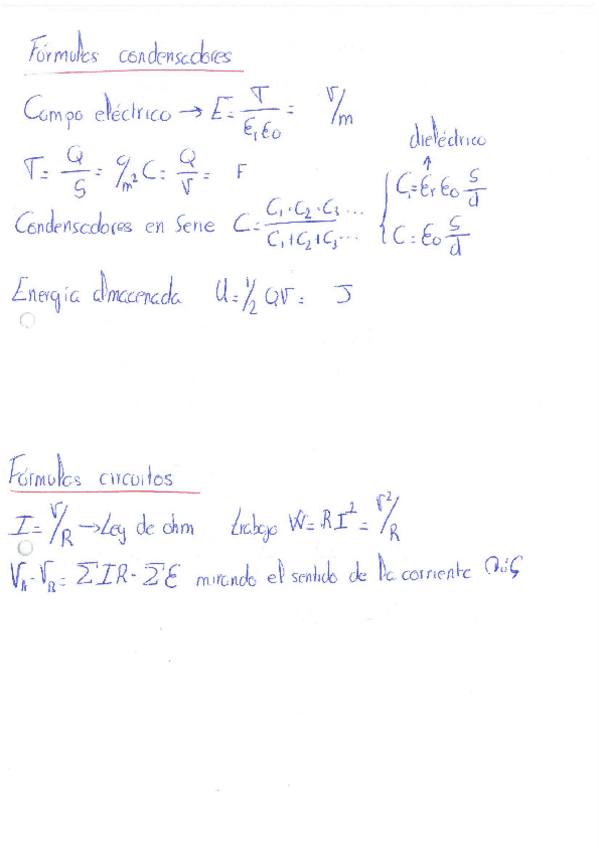 Fórmulas condensadores
Campo eléctrico → E = σ/(εrε0) = V/m
dieléctrico
σ = Q/S = C/m² C = Q/V = F
C = εr ε0 S/d
C = ε0 S/d
Condensadores en Serie C = (C1·C2·C3...)/(C1+C2+C3...)
Energía almacenada U = 1/2 QV = J
Fórmulas circuitos
I = V/R → Ley de ohm trabajo W = RI² = V²/R
VA - VB = ΣIR - Σε mirando el sentido de la corriente